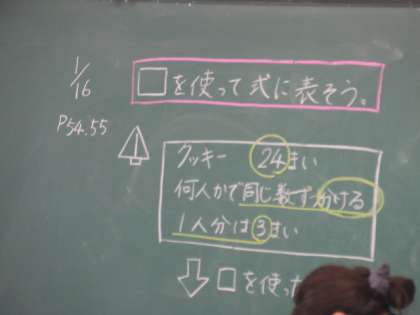 1/16
□を使って式に表そう。
P54.55
クッキー 24まい
何人かで同じ数ずつ分ける
1人分は3まい
□を使った